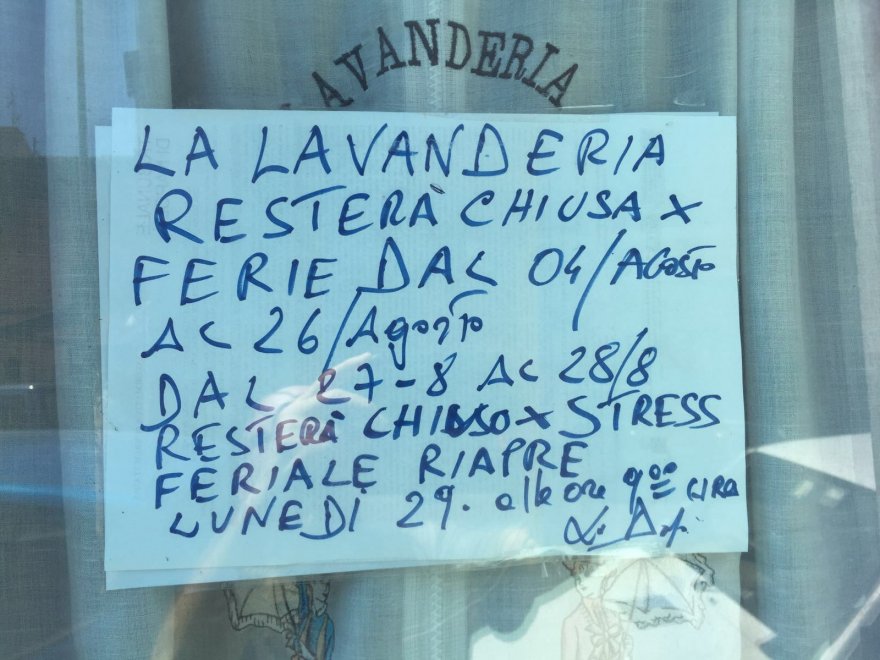 LAVANDERIA
LA LAVANDERIA
RESTERÀ CHIUSA X
FERIE DAL 04/AGOSTO
AL 26/Agosto
DAL 27-8 AL 28/8
RESTERÀ CHIUSO X STRESS
FERIALE RIAPRE
LUNEDI 29. alle ore 9°° CIRA